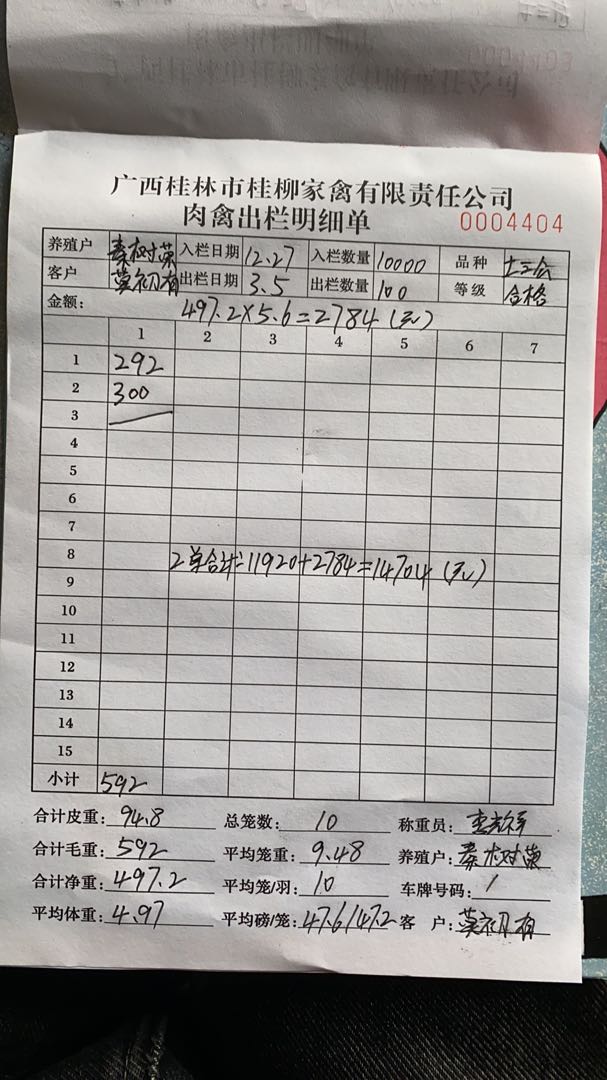 广西桂林市桂柳家禽有限责任公司
肉禽出栏明细单 0004404
养殖户 秦树荣 入栏日期 12.27 入栏数量 10000 品种
客户 莫初有 出栏日期 3.5 出栏数量 100 等级 合格
金额: 497.2×5.6=2784(元)
1 2 3 4 5 6 7
1 292
2 300
3
4
5
6
7
8 2单合计:11920+2784=14704(元)
9
10
11
12
13
14
15
小计 592
合计皮重: 94.8 总笼数: 10 称重员:
合计毛重: 592 平均笼重: 9.48 养殖户: 秦树荣
合计净重: 497.2 平均笼/羽: 10 车牌号码: /
平均体重: 4.97 平均磅/笼: 47.6/47.2 客 户: 莫初有